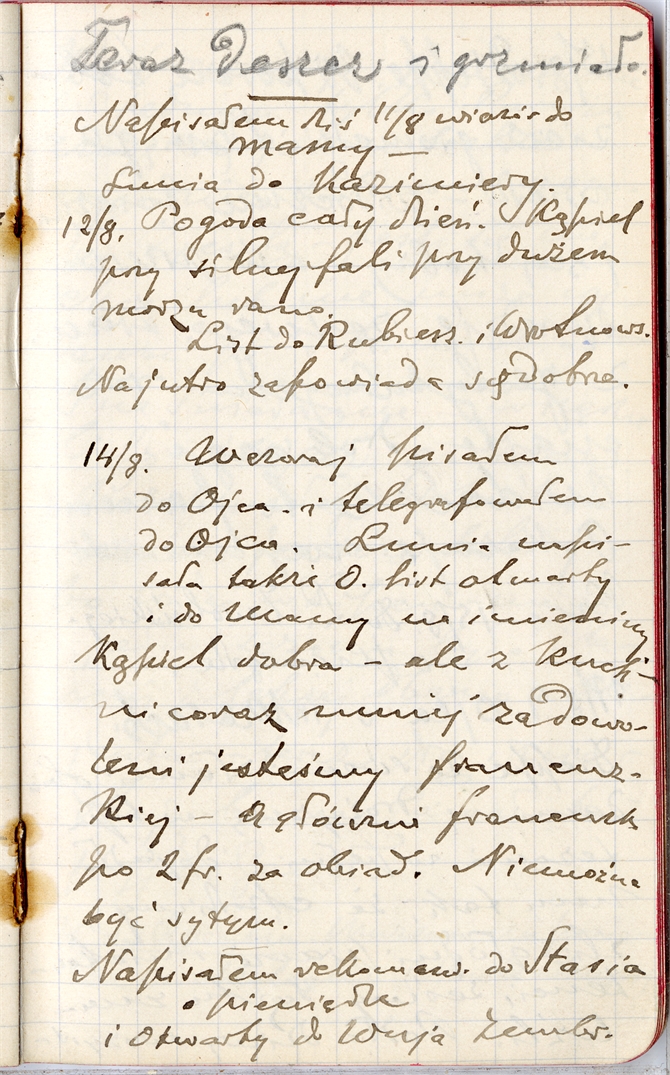 Teraz Deszcz i grzmiało.
Napisałem dziś 11/8 do
mamy —
Lunia do Kazimiery.
12/8. Pogoda cały dzień. Kąpiel
przy silnej fali przy dużem
morzu rano.
List do Rubiesz. i Wrotnows.
Na jutro zapowiada się dobrze.
14/8. Wczoraj pisałem
do Ojca. i telegrafowałem
do Ojca. Lunia napi-
sała także O. list otwarty
i do Mamy na imieniny
Kąpiel dobra — ale z kuch-
ni coraz mniej zadowo-
leni jesteśmy francuz-
kiej — francusk
po 2 fr. za obiad. Niemożna
być sytym.
Napisałem rekomen. do Stasia
o pieniądze
i otwarty do Wuja